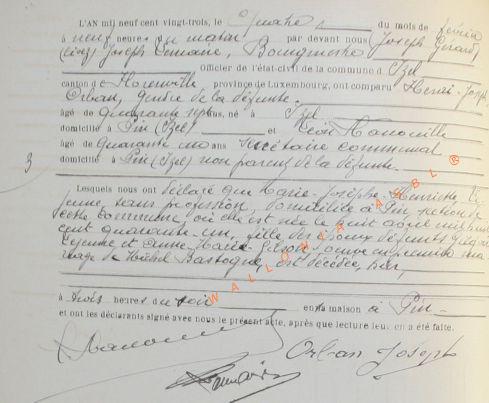 L'AN mil neuf cent vingt-trois, le quatre du mois de février
à neuf heures du matin par devant nous Joseph Gérard
Joseph Lemaire, Bourgmestre
Officier de l'état-civil de la commune d'Izel
canton de Florenville province de Luxembourg, ont comparu Henri-Joseph
Orban, gendre de la défunte
âgé de quarante sept ans, né à Izel
domicilié à Pin (Izel) et Léon Hanoville
âgé de quarante ans secrétaire communal
3 domicilié à Pin (Izel) non parent de la défunte.
Lesquels nous ont déclaré que Marie-Josèphe-Henriette
sans profession, domiciliée à Pin section de
cette commune, où elle est née le huit août mil huit
cent quarante un, fille des époux défunts
Lejeune et Anne-Marie Gilson, épouse en premier ma
riage de Michel Bastogne, est décédée, hier,
à trois heures du soir en sa maison à Pin
et ont les déclarants signé avec nous le présent acte, après que lecture leur en a été faite.
Orban Joseph
WALLONIA ASBL ®